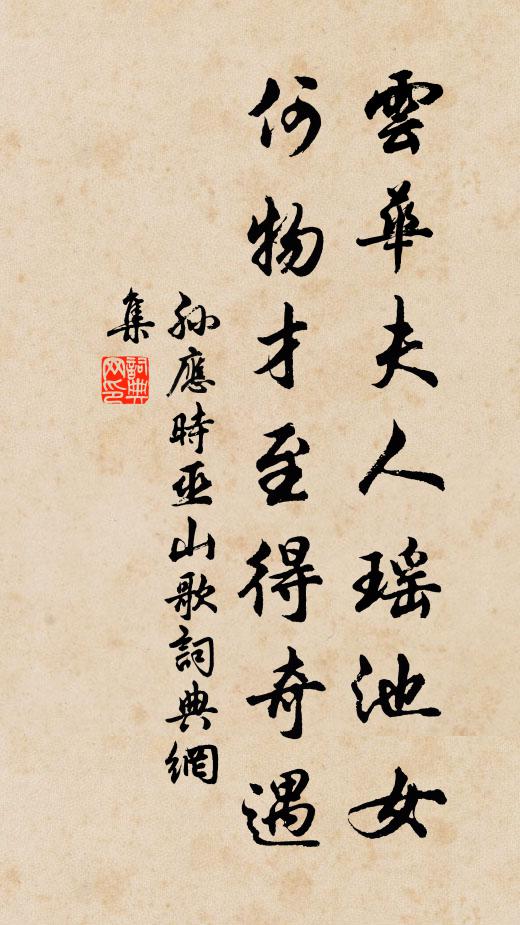 雲華夫人瑶池女
何物才至得奇遇
孫應時巫山歌詞典網
集
詞典
网印